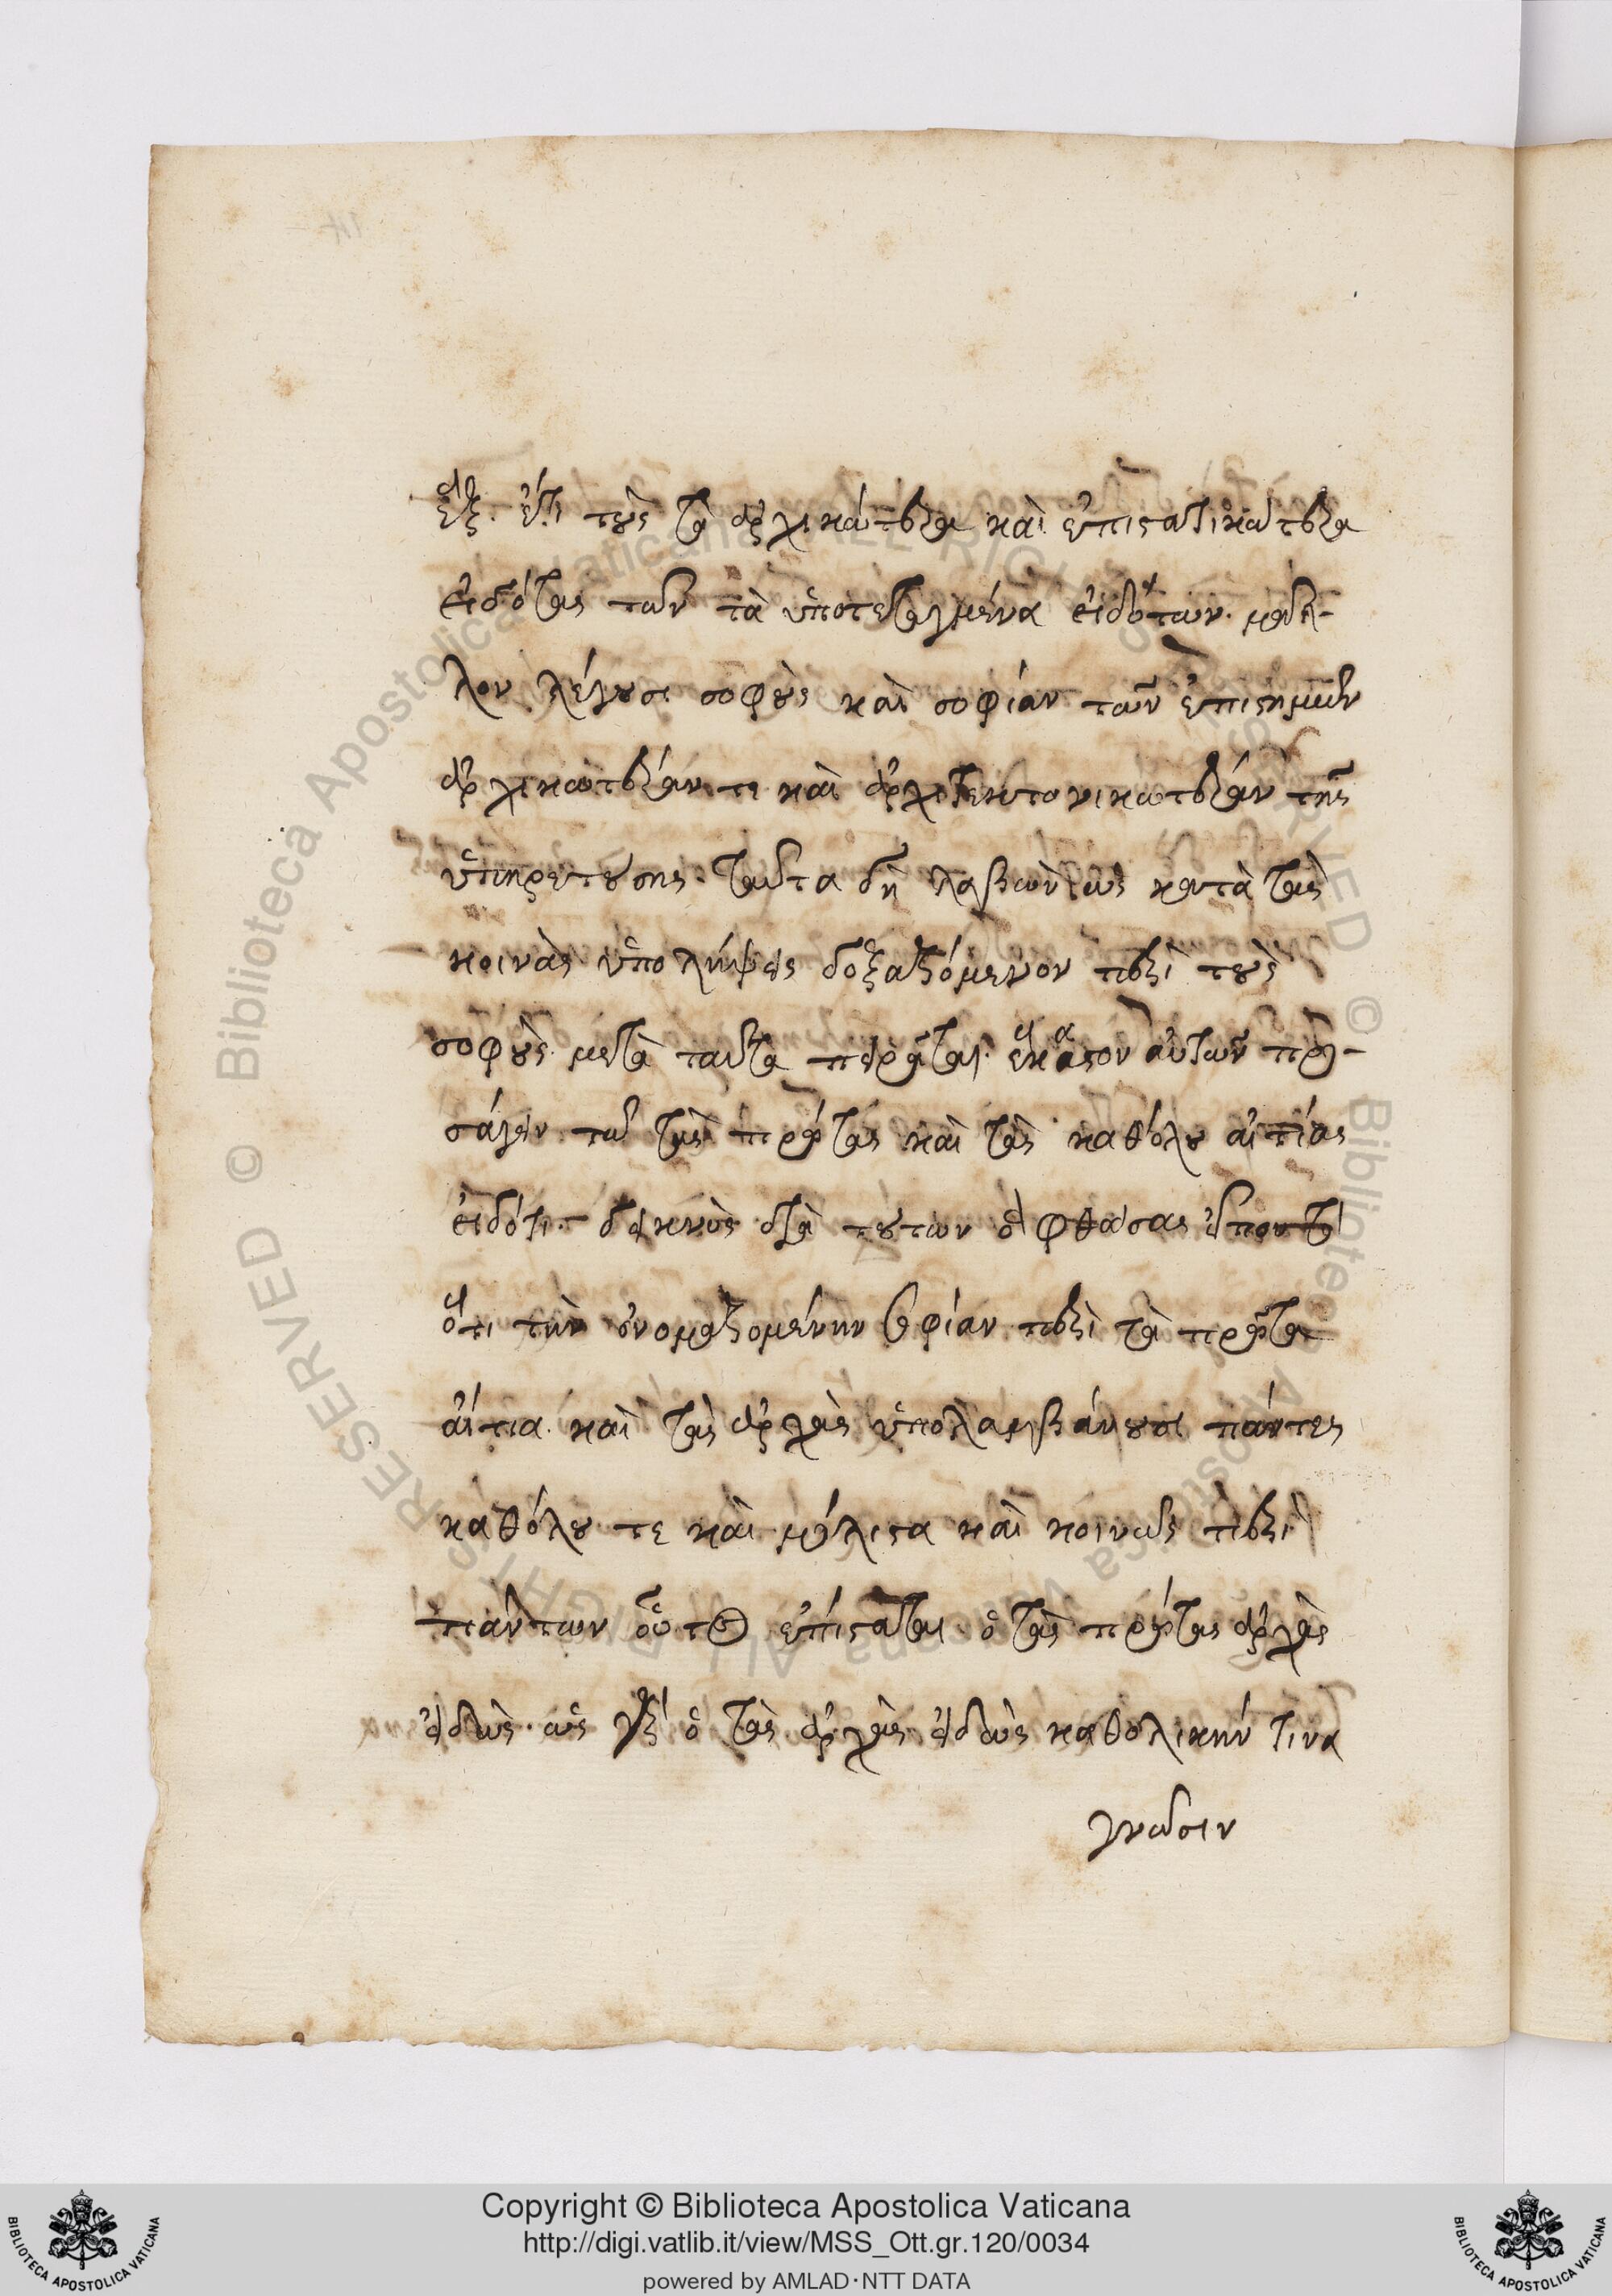 ἕξ. ἔτι τοὺς τὰ ἀρχικώτερα καὶ ἐπιστατικώτερα
εἰδότας τῶν τὰ ὑποτεταγμένα εἰδότων. μᾶλ-
λον λέγουσι σοφοὺς καὶ σοφίαν τῶν ἐπιστημῶν
ἀρχικωτέραν τε καὶ ἀρχιτεκτονικωτέραν τῆς
ὑπηρετούσης. ταῦτα δὴ λαβὼν ὡς κατὰ τὰς
κοινὰς ὑπολήψεις δοξαζόμενον περὶ τοὺς
σοφοὺς μετὰ ταῦτα πειρᾶται. ἕκαστον αὐτῶν προ-
σάγειν τῶ τὰς πρώτας καὶ τὰς καθόλου αἰτίας
εἰδότι. δεικνὺς διὰ τούτων ὃ φθάσας εἶπον τὸ
ὅτι τὴν ὀνομαζομένην σοφίαν περὶ τὰ πρῶτα
αἴτια καὶ τὰς ἀρχὰς ὑπολαμβάνουσι πάντες
καθόλου τε καὶ μάλιστα καὶ κοινῶς περὶ
πάντων οὗτος ἐπίσταται ὁ τὰς πρώτας ἀρχὰς
εἰδὼς. ὡς γὰρ ὁ τὰς ἀρχὰς εἰδὼς καθολικήν τινα
γνῶσιν
Copyright © Biblioteca Apostolica Vaticana
http://digi.vatlib.it/view/MSS_Ott.gr.120/0034
powered by AMLAD·NTT DATA